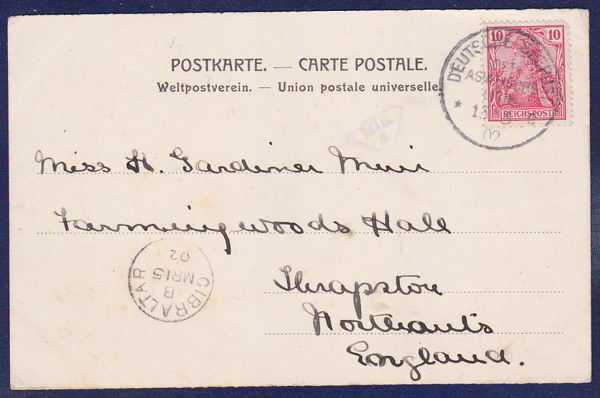 POSTKARTE. — CARTE POSTALE.
Weltpostverein. — Union postale universelle.
10 10
REICHSPOST
DEUTSCHE SEEPOST
OST
LINIE
13
02
Miss H. Gardiner Muir
Farmingwoods Hall
Thrapston
Northants
England.
GIBRALTAR
B
MR15
02